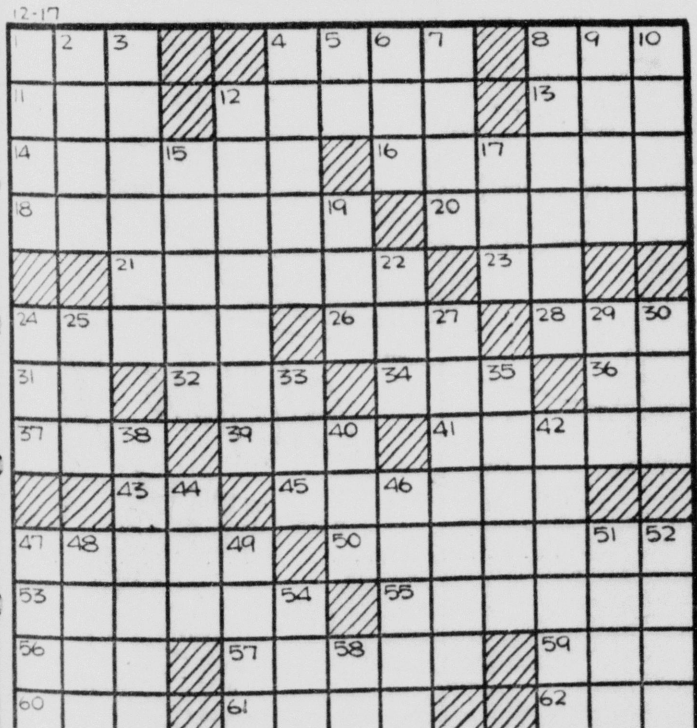 12-17
1 2 3 4 5 6 7 8 9 10
11 12 13
14 15 16 17
18 19 20
21 22 23
24 25 26 27 28 29 30
31 32 33 34 35 36
37 38 39 40 41 42
43 44 45 46
47 48 49 50 51 52
53 54 55
56 57 58 59
60 61 62